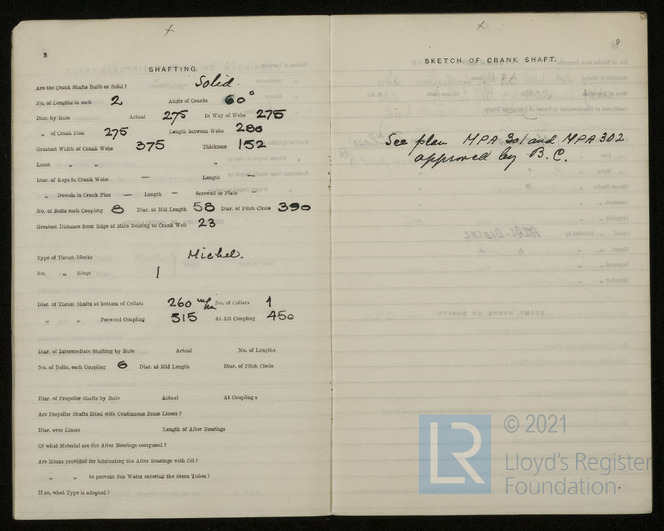 3
SHAFTING.
Are the Crank Shafts Built or Solid? Solid.
No. of Lengths in each 2 Angle of Cranks 60°
Diar. by Rule Actual 275 In Way of Webs 275
„ of Crank Pins 275 Length between Webs 280
Greatest Width of Crank Webs 375 Thickness 152
Least „ „ „
Diar. of Keys in Crank Webs — Length —
„ Dowels in Crank Pins — Length — Screwed or Plain —
No. of Bolts each Coupling 8 Diar. at Mid Length 58 Diar. of Pitch Circle 390
Greatest Distance from Edge of Main Bearing to Crank Web 23
Type of Thrust Blocks Michel.
No. „ Rings 1
Diar. of Thrust Shafts at bottom of Collars 260 m/m No. of Collars 1
„ „ Forward Coupling 315 At Aft Coupling 450
Diar. of Intermediate Shafting by Rule Actual No. of Lengths
No. of Bolts, each Coupling 6 Diar. at Mid Length Diar. of Pitch Circle
Diar. of Propeller Shafts by Rule Actual At Couplings
Are Propeller Shafts fitted with Continuous Brass Liners?
Diar. over Liners Length of After Bearings
Of what Material are the After Bearings composed?
Are Means provided for lubricating the After Bearings with Oil?
„ „ to prevent Sea Water entering the Stern Tubes?
If so, what Type is adopted?
SKETCH OF CRANK SHAFT.
See plan MPA 301 and MPA 302
approved by B.C.
LR © 2021
Lloyd's Register
Foundation